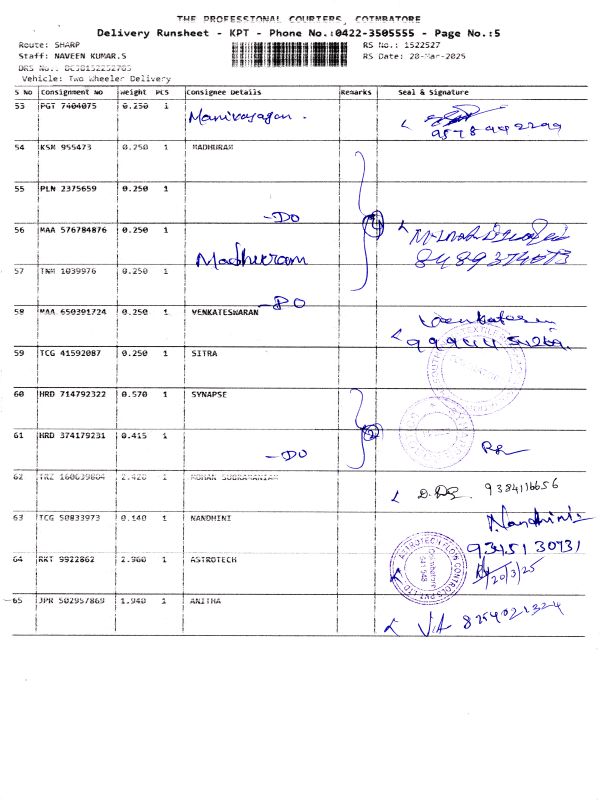 THE PROFESSIONAL COURIERS, COIMBATORE
Delivery Runsheet - KPT - Phone No.:0422-3505555 - Page No.:5
Route: SHARP
RS No.: 1522527
Staff: NAVEEN KUMAR.S
RS Date: 20-Mar-2025
Vehicle: Two Wheeler Delivery
S No Consignment No Weight PCS Consignee Details Remarks Seal & Signature
53 PGT 7404075 0.250 1 Manivasagan.
54 KSM 955473 0.250 1 MADHURAM
55 PLN 2375659 0.250 1
-DO
56 MAA 576784876 0.250 1
Madhuram
8489374073
57 TNM 1039976 0.250 1
-DO
58 MAA 650391724 0.250 1 VENKATESWARAN
59 TCG 41592087 0.250 1 SITRA
60 HRD 714792322 0.570 1 SYNAPSE
61 HRD 374179231 0.415 1
-DO
62 TRZ 160639804 2.420 1 MOHAN SUBRAMANIAM
9384116656
63 TCG 50833973 0.140 1 NANDHINI
Nandhini
9345130731
64 RKT 9922862 2.960 1 ASTROTECH
20/3/25
65 JPR 502957869 1.940 1 ANITHA
8254021324